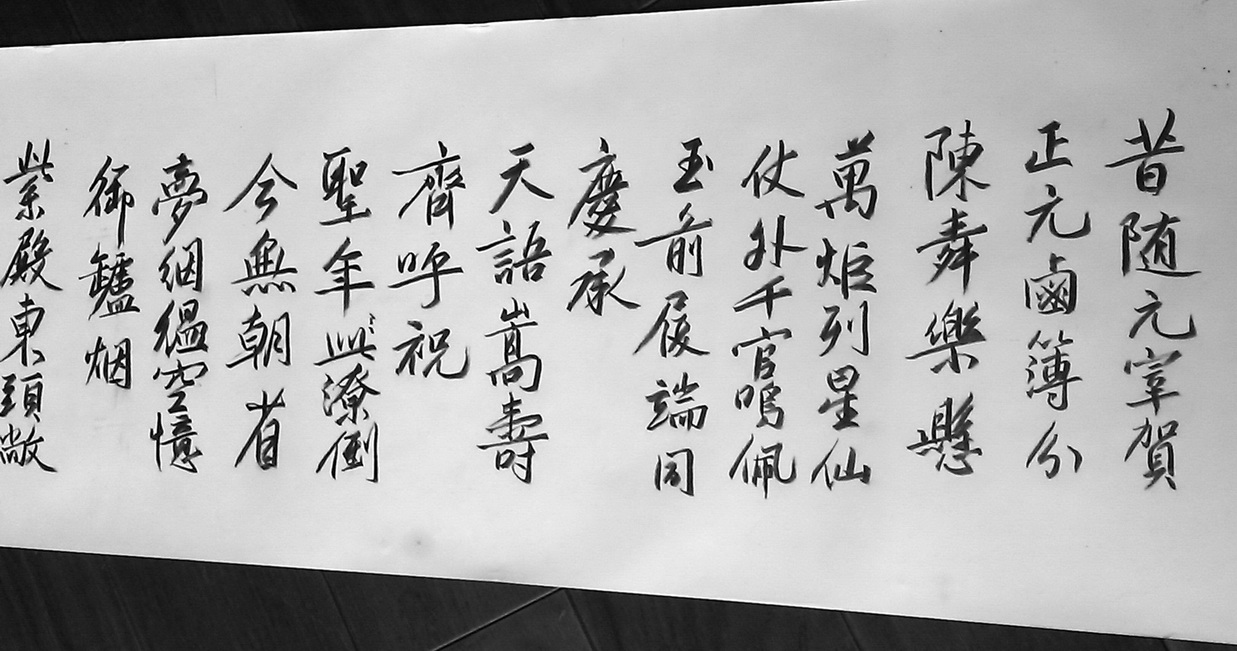 昔随元宰賀
正元鹵簿分
陳舞樂懸
萬炬列星仙
仗外千官鳴佩
玉前履端同
慶承
天語嵩壽
齊呼祝
聖年此潦倒
今無朝省
夢絪縕空憶
御鑪烟
紫殿東頭敞